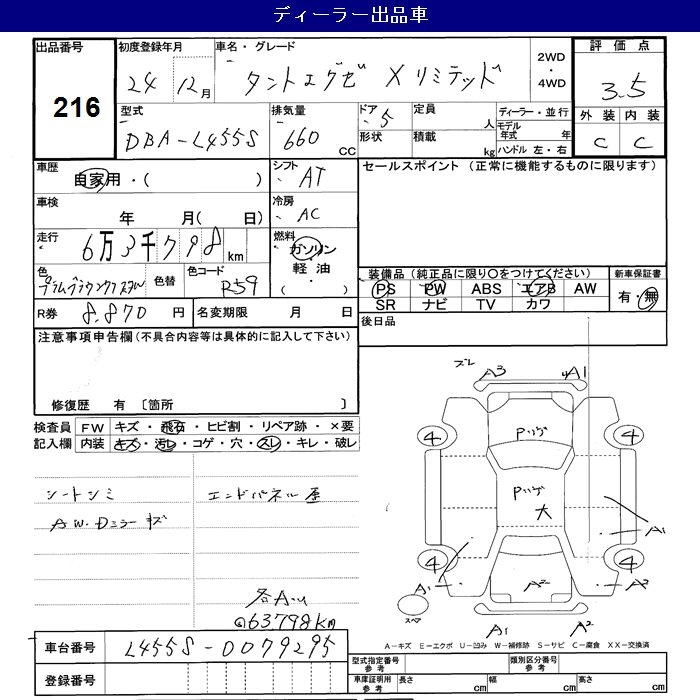 ディーラー出品車
出品番号
216
初度登録年月
24 12月
車名・グレード
タントエグゼ Xリミテッド
2WD
・
4WD
評価点
3.5
型式
DBA-L455S
排気量
660 cc
ドア 5
形状
定員 人
積載 kg
ディーラー・並行
モデル年式 年
ハンドル 左・右
外装 内装
C C
車歴
自家用・( )
シフト
AT
セールスポイント (正常に機能するものに限ります)
車検
年 月( 日)
冷房
AC
走行
6万3千798km
燃料
ガソリン
軽油
( ・ )
色
プラムブラウンクリスタル
色替
色コード
R59
装備品(純正品に限り○をつけてください)
PS PW ABS エアB AW
SR ナビ TV カワ
新車保証書
有・無
R券 8.870 円
名変期限 月 日
後日品
注意事項申告欄(不具合内容等は具体的に記入して下さい)
修復歴 有 〔箇所 〕
検査員
記入欄
FW キズ・飛石・ヒビ割・リペア跡・×要
内装 キズ・汚レ・コゲ・穴・スレ・キレ・破レ
シートシミ
A.W.Dミラーキズ
エンドパネル
各Aい
63798km
A3 A1
4 4
Pハゲ
Pハゲ
大
A1
4 4
A1 A2 A2
スペア
A1 A2
A-キズ E-エクボ U-凹み W-補修跡 S-サビ C-腐食 XX-交換済
車台番号 L455S-0079295
登録番号
型式指定番号
参考
類別区分番号
参考
車庫証明用
参考
長さ cm 幅 cm 高さ cm